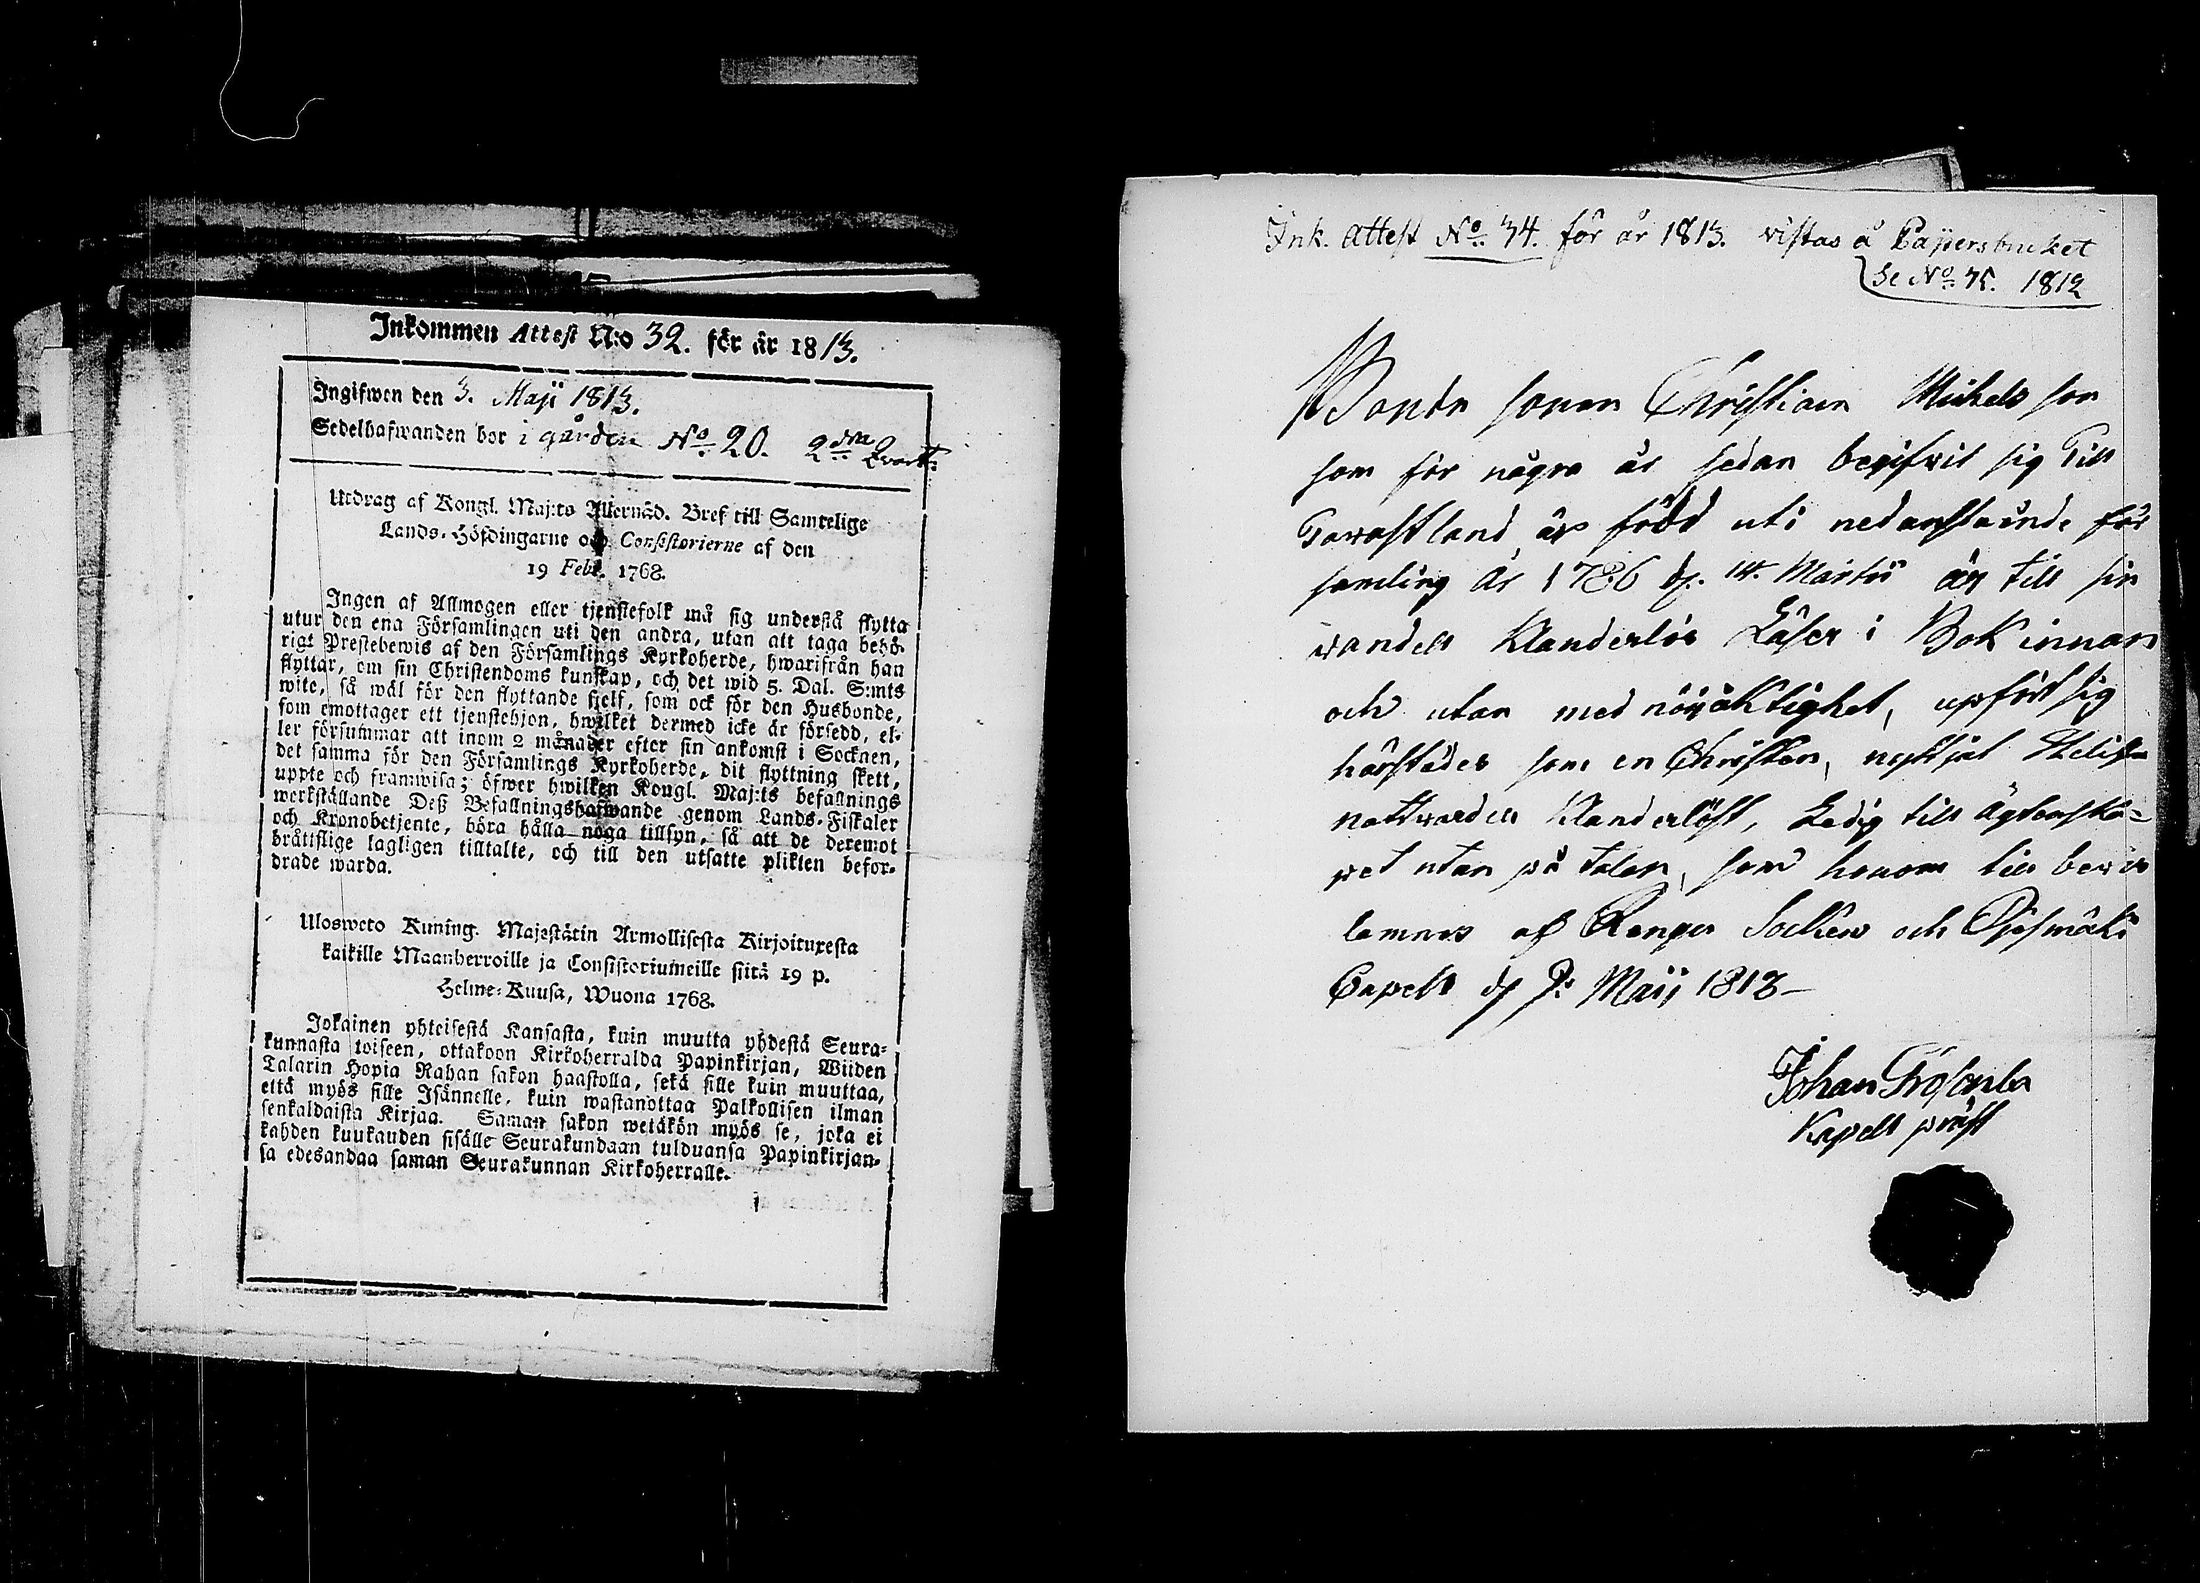 Inkommen Attest N:o 32. för år 1813.
Ingifwen den 3. Maji 1813.
Sedelhafwanden bor i gården No. 20. 2dra Qvart:
Utdrag af Kongl. Maj:ts Allernåd. Bref till Samtelige
Lands-Höfdingarne och Consistorierne af den
19 Febr. 1768.
Ingen af Allmogen eller tjenstefolk må sig understå flytta
utur den ena Församlingen uti den andra, utan att taga behö-
rigt Prestebewis af den Församlings Kyrkoherde, hwarifrån han
flyttar, om sin Christendoms kunskap, och det wid 5. Dal. S:mts
wite, så wäl för den flyttande sjelf, som ock för den Husbonde,
som emottager ett tjenstehjon, hwilket dermed icke är försedd, el-
ler försummar att inom 2 månader efter sin ankomst i Socknen,
det samma för den Församlings Kyrkoherde, dit flyttning skett,
uppte och framwisa; öfwer hwilken Kongl. Maj:ts befallnings
werkställande Deß Befallningshafwande genom Lands-Fiskaler
och Kronobetjente, böra hålla noga tillsyn, så att de deremot
bråttslige lagligen tilltalte, och till den utsatte plikten befor-
drade warda.
Uloswето Kuning. Majestätin Armollisesta Kirjoituxesta
kaikille Maanherroille ja Consistoriumeille siitä 19 p.
Helme-Kuusa, Wuona 1768.
Jokainen yhteisestä Kansasta, kuin muutta yhdestä Seura-
kunnasta toiseen, ottakoon Kirkoherralda Papinkirjan, Wiiden
Talarin Hopia Rahan sakon haastolla, sekä sille kuin muuttaa,
että myös sille Isännelle, kuin wastanottaa Palkollisen ilman
senkaldaista Kirjaa. Saman sakon wetäkön myös se, joka ei
kahden kuukauden sisälle Seurakundaan tulduansa Papinkirjan-
sa edesandaa saman Seurakunnan Kirkoherralle.
Ink. Attest No. 34. för år 1813. vistas å Papersbruket
Se No. 75. 1812
Bonde sonen Christian Michels son
som för några år sedan begifvit sig Till
Tawastland, är född uti nedanstående för
samling År 1786 d. 14. Martii är till sin
vandel Klanderlös Läser i Bok innan
och utan med nöijaktighet, upfört sig
härstädes som en Christen, nyttjat Helige
nattvarden Klanderlöst, Ledig till Ägtenska-
pet utan på talan, som honom till bevis
lemnas af Socken och
Capell d. Maij 1813
Johan
Kapell präst